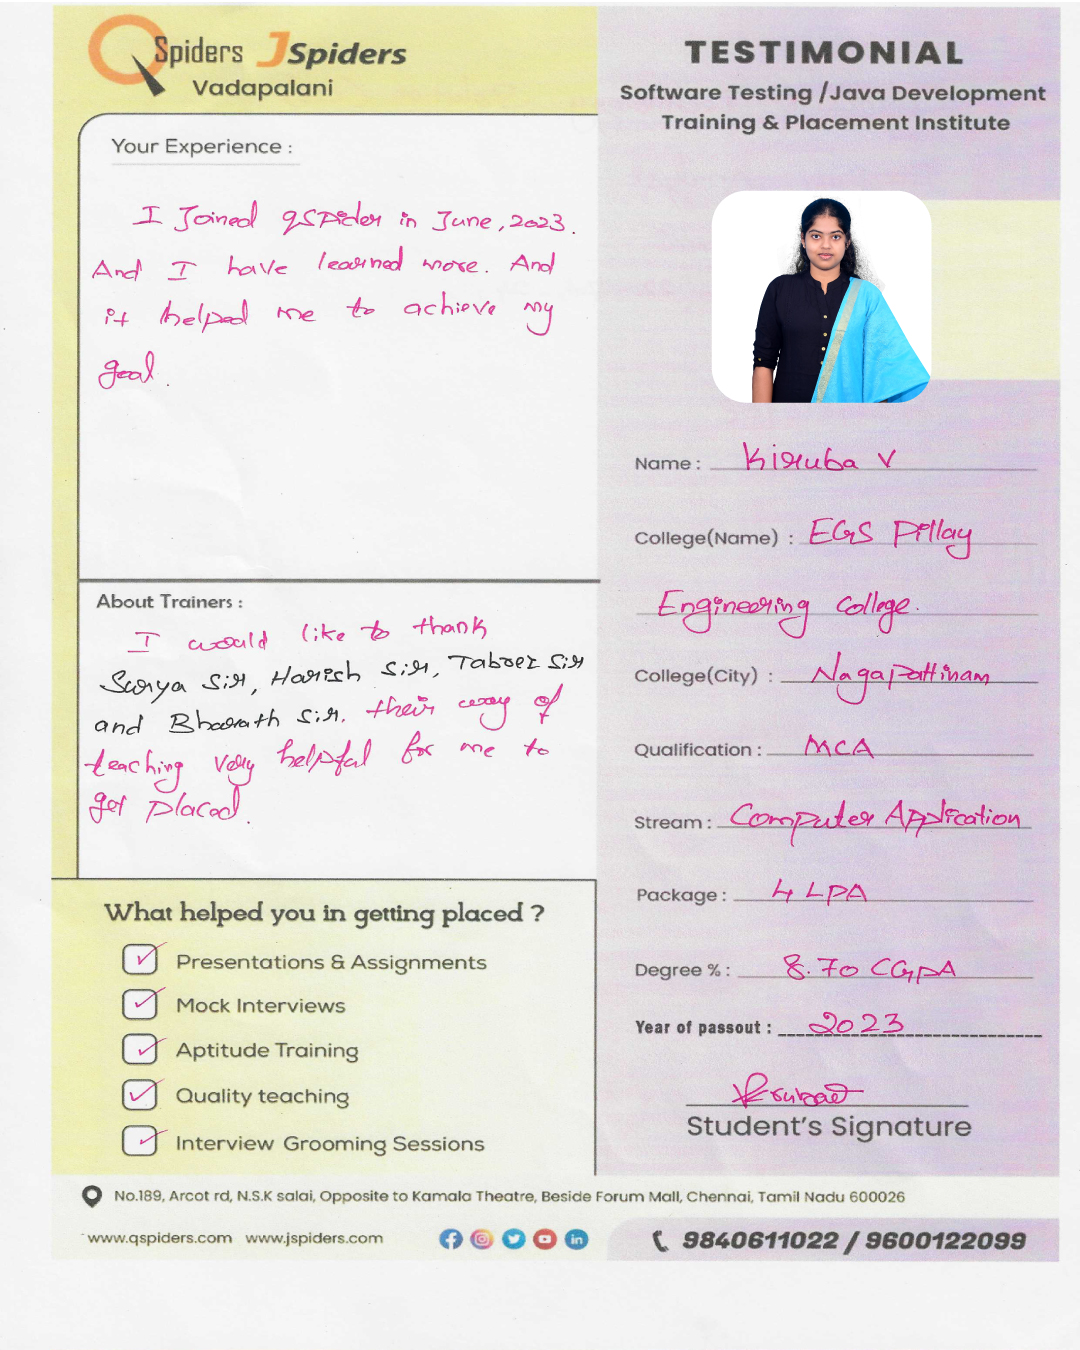 QSpiders JSpiders
Vadapalani
TESTIMONIAL
Software Testing /Java Development
Training & Placement Institute
Your Experience :
I Joined qspider in June, 2023.
And I have learned more. And
it helped me to achieve my
goal.
Name : Kiruba V
College(Name) : EGS Pillay
Engineering College.
College(City) : Nagapattinam
Qualification : MCA
Stream : Computer Application
Package : 4 LPA
Degree % : 8.70 CGPA
Year of passout : 2023
Student's Signature
About Trainers :
I would like to thank
Surya Sir, Harish Sir, Tabrez Sir
and Bharath Sir. their way of
teaching very helpful for me to
get placed.
What helped you in getting placed ?
Presentations & Assignments
Mock Interviews
Aptitude Training
Quality teaching
Interview Grooming Sessions
No.189, Arcot rd, N.S.K salai, Opposite to Kamala Theatre, Beside Forum Mall, Chennai, Tamil Nadu 600026
www.qspiders.com www.jspiders.com
9840611022 / 9600122099